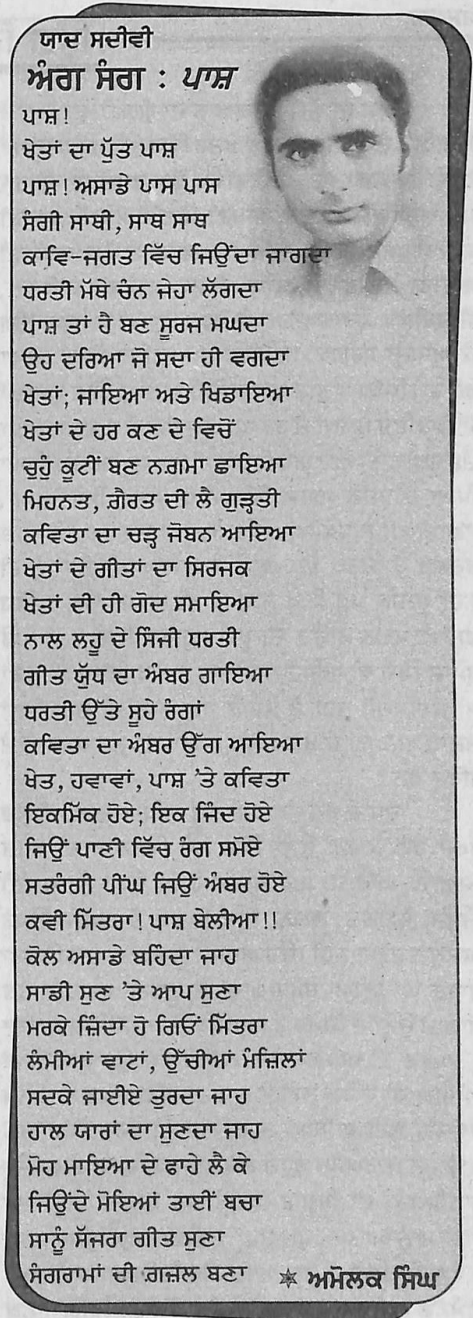 ਯਾਦ ਸਦੀਵੀ
ਅੰਗ ਸੰਗ : ਪਾਸ਼
ਪਾਸ਼!
ਖੇਤਾਂ ਦਾ ਪੁੱਤ ਪਾਸ਼
ਪਾਸ਼! ਅਸਾਡੇ ਪਾਸ ਪਾਸ
ਸੰਗੀ ਸਾਥੀ, ਸਾਥ ਸਾਥ
ਕਾਵਿ-ਜਗਤ ਵਿੱਚ ਜਿਉਂਦਾ ਜਾਗਦਾ
ਧਰਤੀ ਮੱਥੇ ਚੰਨ ਜੇਹਾ ਲੱਗਦਾ
ਪਾਸ਼ ਤਾਂ ਹੈ ਬਣ ਸੂਰਜ ਮਘਦਾ
ਉਹ ਦਰਿਆ ਜੋ ਸਦਾ ਹੀ ਵਗਦਾ
ਖੇਤਾਂ; ਜਾਇਆ ਅਤੇ ਖਿਡਾਇਆ
ਖੇਤਾਂ ਦੇ ਹਰ ਕਣ ਦੇ ਵਿਚੋਂ
ਚੁਹੁੰ ਕੂਟੀਂ ਬਣ ਨਗ਼ਮਾ ਛਾਇਆ
ਮਿਹਨਤ, ਗ਼ੈਰਤ ਦੀ ਲੈ ਗੁੜ੍ਹਤੀ
ਕਵਿਤਾ ਦਾ ਚੜ੍ਹ ਜੋਬਨ ਆਇਆ
ਖੇਤਾਂ ਦੇ ਗੀਤਾਂ ਦਾ ਸਿਰਜਕ
ਖੇਤਾਂ ਦੀ ਹੀ ਗੋਦ ਸਮਾਇਆ
ਨਾਲ ਲਹੂ ਦੇ ਸਿੰਜੀ ਧਰਤੀ
ਗੀਤ ਯੁੱਧ ਦਾ ਅੰਬਰ ਗਾਇਆ
ਧਰਤੀ ਉੱਤੇ ਸੂਹੇ ਰੰਗਾਂ
ਕਵਿਤਾ ਦਾ ਅੰਬਰ ਉੱਗ ਆਇਆ
ਖੇਤ, ਹਵਾਵਾਂ, ਪਾਸ਼ 'ਤੇ ਕਵਿਤਾ
ਇਕਮਿੱਕ ਹੋਏ; ਇਕ ਜਿੰਦ ਹੋਏ
ਜਿਉਂ ਪਾਣੀ ਵਿੱਚ ਰੰਗ ਸਮੋਏ
ਸਤਰੰਗੀ ਪੀਂਘ ਜਿਉਂ ਅੰਬਰ ਹੋਏ
ਕਵੀ ਮਿੱਤਰਾ! ਪਾਸ਼ ਬੇਲੀਆ!!
ਕੋਲ ਅਸਾਡੇ ਬਹਿੰਦਾ ਜਾਹ
ਸਾਡੀ ਸੁਣ 'ਤੇ ਆਪ ਸੁਣਾ
ਮਰਕੇ ਜ਼ਿੰਦਾ ਹੋ ਗਿਓਂ ਮਿੱਤਰਾ
ਲੰਮੀਆਂ ਵਾਟਾਂ, ਉੱਚੀਆਂ ਮੰਜ਼ਿਲਾਂ
ਸਦਕੇ ਜਾਈਏ ਤੁਰਦਾ ਜਾਹ
ਹਾਲ ਯਾਰਾਂ ਦਾ ਸੁਣਦਾ ਜਾਹ
ਮੋਹ ਮਾਇਆ ਦੇ ਫਾਹੇ ਲੈ ਕੇ
ਜਿਉਂਦੇ ਮੋਇਆਂ ਤਾਈਂ ਬਚਾ
ਸਾਨੂੰ ਸੱਜਰਾ ਗੀਤ ਸੁਣਾ
ਸੰਗਰਾਮਾਂ ਦੀ ਗ਼ਜ਼ਲ ਬਣਾ
✵ ਅਮੋਲਕ ਸਿੰਘ